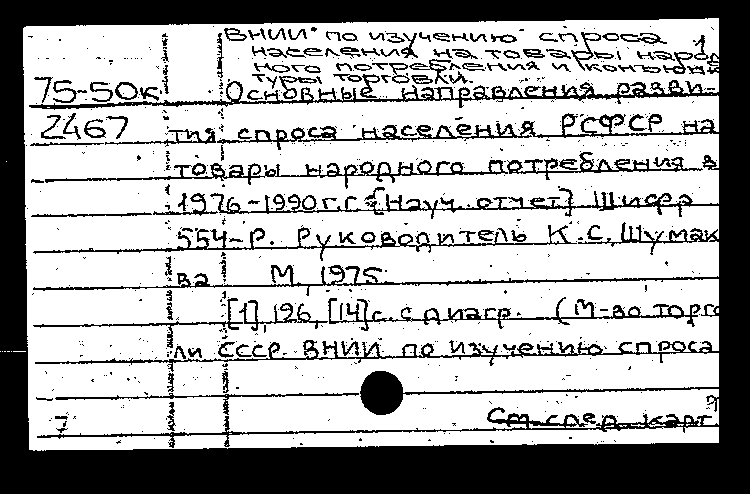 ВНИИ по изучению спроса 1
населения на товары народ
ного потребления и конъюнк
туры торговли.
75-50к Основные направления разви-
2467 тия спроса населения РСФСР на
товары народного потребления в
1976-1990г.г. [Науч. отчет] Шифр
554-Р. Руководитель К.С. Шумак
ва М., 1975.
[1], 196, [14] с. с диагр. (М-во торго
ли СССР. ВНИИ по изучению спроса
7 См. след. карт.